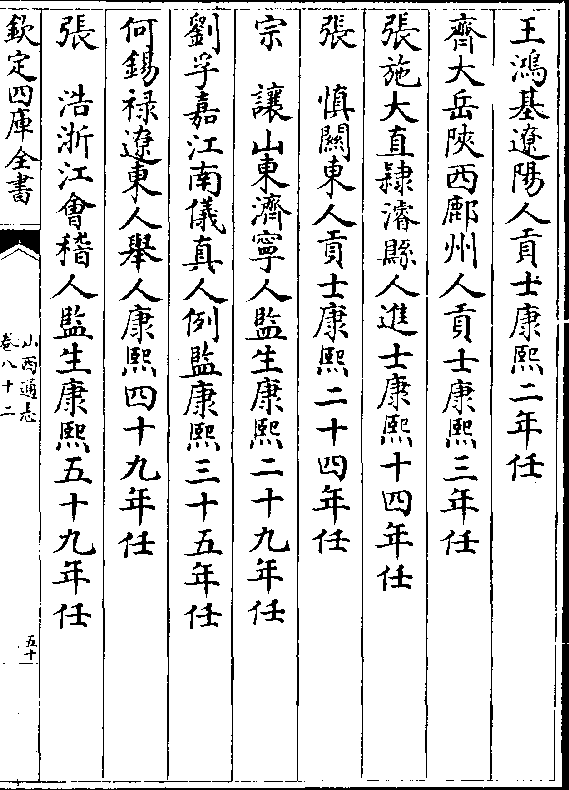 王鴻基遼陽人貢士康熙二年任
齊大岳陜西鄜州人貢士康熙三年任
張施大直隸濬縣人進士康熙十四年任
張　慎關東人貢士康熙二十四年任
宗　讓山東濟寧人監生康熙二十九年任
劉孚嘉江南儀真人例監康熙三十五年任
何錫祿遼東人舉人康熙四十九年任
張　浩浙江會稽人監生康熙五十九年任
欽定四庫全書
山西通志
卷八十二
五十